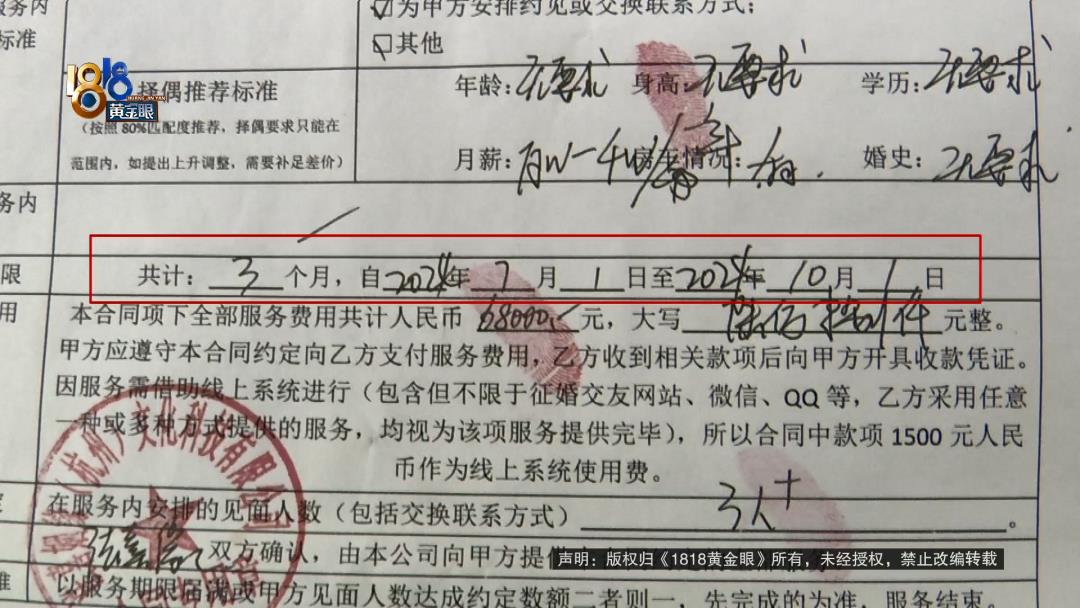 服务内
☑为甲方安排约见或交换联系方式；
标准
□其他
1818黄金眼
HUANG JIN YAN
择偶推荐标准
年龄：无要求 身高：无要求 学历：无要求
（按照80%匹配度推荐，择偶要求只能在
范围内，如提出上升调整，需要补足差价）
月薪： 房车情况： 婚史：无要求
务内
限
共计：3个月，自2024年7月1日至2024年10月1日
用
本合同项下全部服务费用共计人民币 68000 元，大写 元整。
甲方应遵守本合同约定向乙方支付服务费用，乙方收到相关款项后向甲方开具收款凭证。
因服务需借助线上系统进行（包含但不限于征婚交友网站、微信、QQ等，乙方采用任意
一种或多种方式提供的服务，均视为该项服务提供完毕），所以合同中款项1500元人民
币作为线上系统使用费。
在服务内安排的见面人数（包括交换联系方式）3人+。
双方确认，由本公司向甲方提供
声明：版权归《1818黄金眼》所有，未经授权，禁止改编转载
准
以服务期限届满或甲方见面人数达成约定数额二者则一，先完成的为准，服务结束。